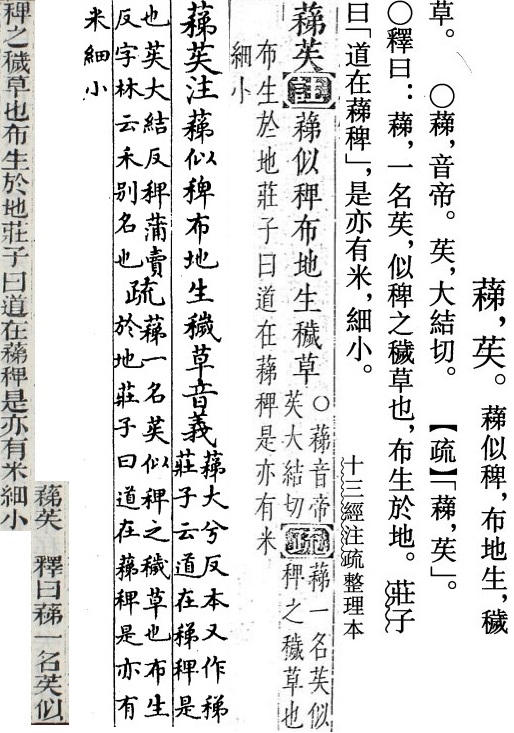 蕛，苵。蕛似稗，布地生，穢
草。　○蕛，音帝。苵，大結切。　【疏】「蕛，苵」。
○釋曰：蕛，一名苵，似稗之穢草也，布生於地。莊子
曰「道在蕛稗」，是亦有米，細小。
十三經注疏整理本
蕛苵注蕛似稗布地生穢草
○蕛音帝
苵大結切
疏
蕛一名苵似
稗之穢草也
布生於地莊子曰道在蕛稗是亦有米
細小
蕛苵注蕛似稗布地生穢草音義
蕛大兮反本又作稊
莊子云道在稊稗是
也苵大結反稗蒲賣
反字林云禾別名也
疏
蕛一名苵似稗之穢草也布生
於地莊子曰道在蕛稗是亦有
米細小
蕛苵　釋曰蕛一名苵似
稗之穢草也布生於地莊子曰道在蕛稗是亦有米細小